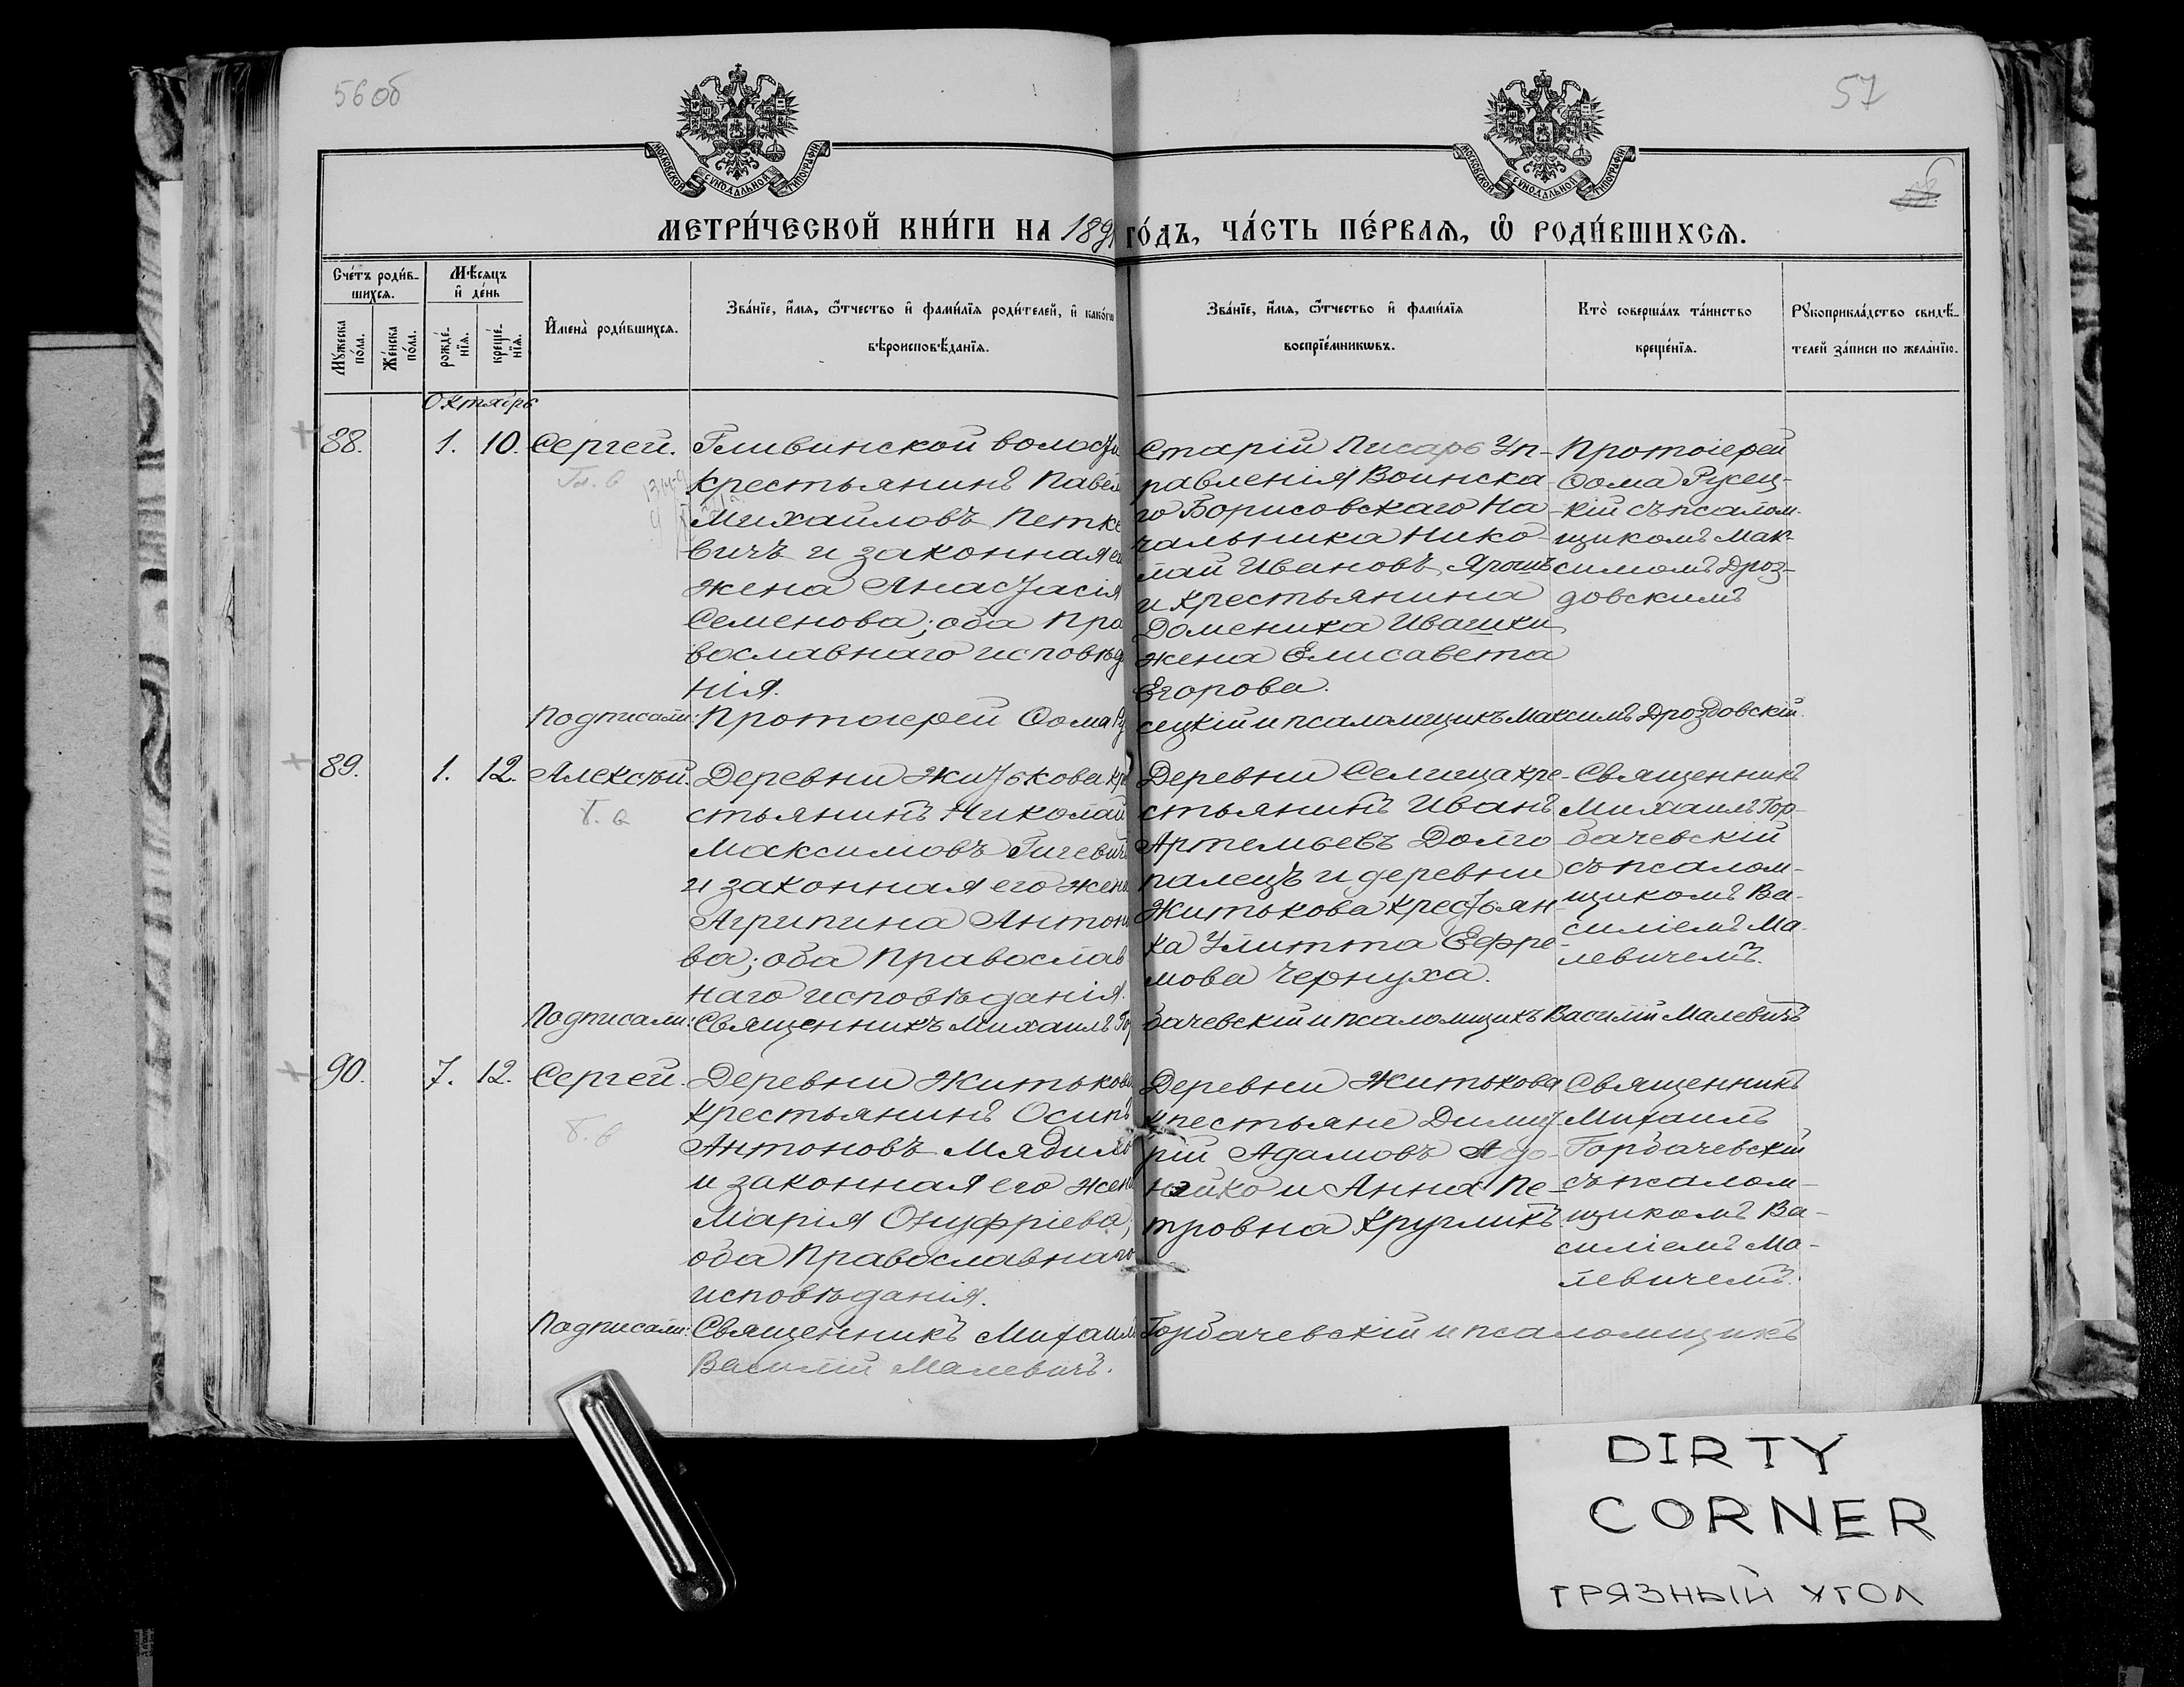 56 об
57
МОСКОВСКОЙ СѴНОДАЛЬНОЙ ТИПОГРАФІИ
МОСКОВСКОЙ СѴНОДАЛЬНОЙ ТИПОГРАФІИ
МЕТРИ́ЧЕСКОЙ КНИ́ГИ НА 189
ГО́ДЪ, ЧА́СТЬ ПЕ́РВАѦ, Ѡ҆ РОДИ́ВШИХСѦ.
Сче́тъ роди́в-
шихсѧ.
Мѣ́сѧцъ
и҆ де́нь
Мꙋ́жеска
по́ла.
Же́нска
по́ла.
рожде́-
нїѧ.
креще́-
нїѧ.
И҆мена̀ роди́вшихсѧ.
Зва́нїе, и҆́мѧ, ѻ҆́тчество и҆ фами́лїѧ роди́телей, и҆ како́гѡ
вѣроисповѣ́данїѧ.
Зва́нїе, и҆́мѧ, ѻ҆́тчество и҆ фами́лїѧ
воспрїе́мникѡвъ.
Кто̀ соверша́лъ та́инство
креще́нїѧ.
Рꙋкоприкла́дство свидѣ́-
телей за́писи по жела́нїю.
Октябрь
88. 1. 10. Сергей.
Гл. в
Гливинской волости
крестьянинъ Павел
Михаиловъ Петке
вичъ и законная е
жена Анастасія
Семенова; оба Пра
вославнаго исповѣд
нія.
Старій Писарь Уп-
равленія Воинска
го Борисовскаго На
чальника Нико-
лай Ивановъ Ярошъ
и крестьянина
Доменика Ивашки
жена Елисавета
Егорова.
Протоіерей
Ѳома Русец-
кій съ псалом-
щикомъ Мак-
симомъ Дроз-
довскимъ
Подписали: Протоіерей Ѳома Ру сецкій и псаломщикъ Максимъ Дроздовскій.
89. 1. 12. Алексѣй.
Деревни Житькова кре
стьянинъ Николай
Максимовъ Гичевичъ
и законная его жена
Агрипина Антоно
ва; оба Православ
наго исповѣданія.
Деревни Селища кре-
стьянинъ Иванъ
Артемьевъ Долго
палецъ и деревни
Житькова крестьян-
ка Улитта Ефре-
мова Чернуха.
Священникъ
Михаилъ Гор-
бачевскій
съ псалом-
щикомъ Ва-
силіемъ Ма-
левичемъ.
Подписали: Священникъ Михаилъ Гор бачевскій и псаломщикъ Василій Малевичъ
90. 7. 12. Сергей.
Деревни Житькова
крестьянинъ Осипъ
Антоновъ Мядило
и законная его жена
Марія Онуфріева;
оба Православнаго
исповѣданія.
Деревни Житькова
крестьяне Димит
рій Адамовъ
и Анна Пе-
тровна Кругликъ
Священникъ
Михаилъ
Горбачевскій
съ псалом-
щикомъ Ва-
силіемъ Ма-
левичемъ.
Подписали: Священникъ Михаилъ Горбачевскій и псаломщикъ
Василій Малевичъ.
DIRTY
CORNER
ГРЯЗНЫЙ УГОЛ